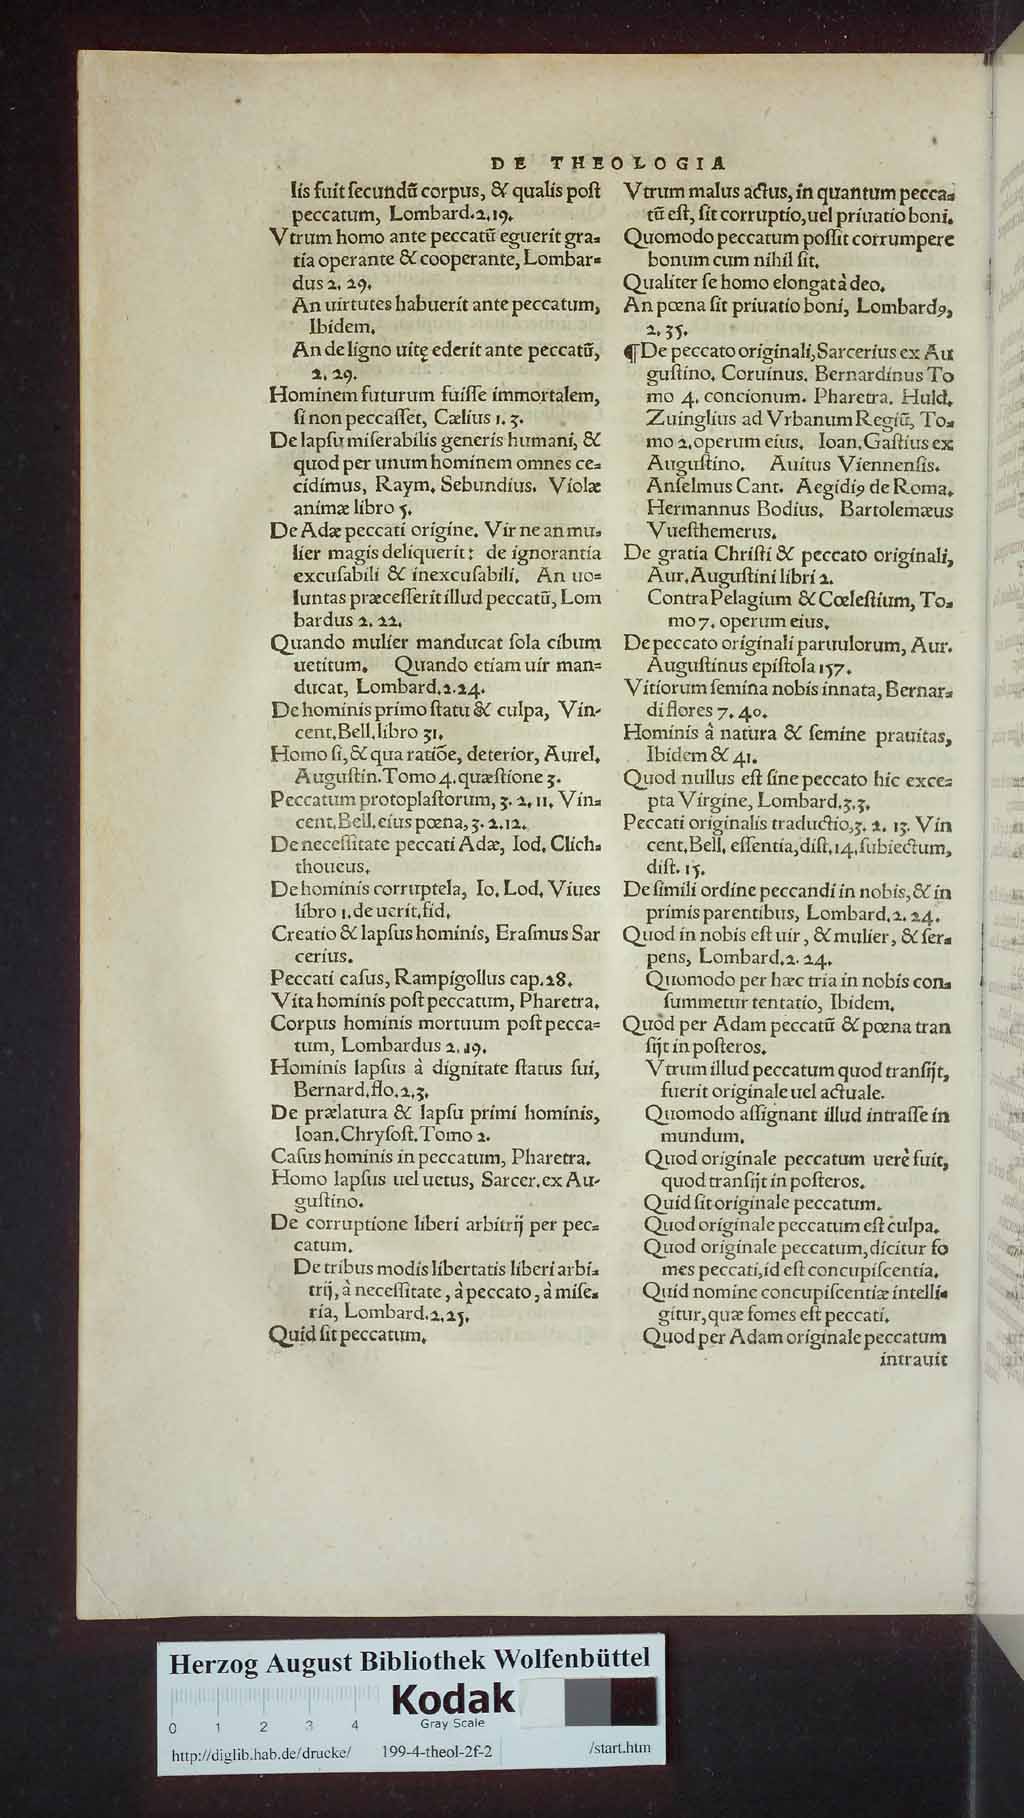 DE THEOLOGIA
lis fuit ſecundũ corpus, & qualis poſt
peccatum, Lombard.2.19.
Vtrum homo ante peccatũ eguerit gra-
tia operante & cooperante, Lombar-
dus 2. 29.
An uirtutes habuerit ante peccatum,
Ibidem.
An de ligno uitę ederit ante peccatũ,
2. 29.
Hominem futurum fuiſſe immortalem,
ſi non peccaſſet, Cælius 1. 3.
De lapſu miſerabilis generis humani, &
quod per unum hominem omnes ce-
cidimus, Raym. Sebundius. Violæ
animæ libro 5.
De Adæ peccati origine. Vir ne an mu-
lier magis deliquerit: de ignorantia
excuſabili & inexcuſabili. An uo-
luntas præceſſerit illud peccatũ, Lom
bardus 2. 22.
Quando mulier manducat ſola cibum
uetitum. Quando etiam uir man-
ducat, Lombard.2.24.
De hominis primo ſtatu & culpa, Vin-
cent.Bell.libro 31.
Homo ſi, & qua ratiõe, deterior, Aurel.
Auguſtin.Tomo 4.quæſtione 3.
Peccatum protoplaſtorum, 3. 2. 11. Vin-
cent.Bell.eius pœna, 3. 2.12.
De neceſſitate peccati Adæ, Iod. Clich-
thoueus.
De hominis corruptela, Io. Lod. Viues
libro 1.de uerit.fid.
Creatio & lapſus hominis, Eraſmus Sar
cerius.
Peccati caſus, Rampigollus cap.28.
Vita hominis poſt peccatum, Pharetra.
Corpus hominis mortuum poſt pecca-
tum, Lombardus 2.19.
Hominis lapſus à dignitate ſtatus ſui,
Bernard.flo.2.3.
De prælatura & lapſu primi hominis,
Ioan.Chryſoſt.Tomo 2.
Caſus hominis in peccatum, Pharetra.
Homo lapſus uel uetus, Sarcer.ex Au-
guſtino.
De corruptione liberi arbitrij per pec-
catum.
De tribus modis libertatis liberi arbi-
trij, à neceſſitate, à peccato, à miſe-
ria, Lombard.2.25.
Quid ſit peccatum.
Vtrum malus actus, in quantum pecca-
tũ eſt, ſit corruptio, uel priuatio boni.
Quomodo peccatum poſſit corrumpere
bonum cum nihil ſit.
Qualiter ſe homo elongat à deo.
An pœna ſit priuatio boni, Lombardꝰ,
2. 35.
¶De peccato originali, Sarcerius ex Au
guſtino. Coruinus. Bernardinus To
mo 4. concionum. Pharetra. Huld.
Zuinglius ad Vrbanum Regiũ, To-
mo 2.operum eius. Ioan.Gaſtius ex
Auguſtino. Auitus Viennenſis.
Anſelmus Cant. Aegidiꝰ de Roma.
Hermannus Bodius. Bartolemæus
Vueſthemerus.
De gratia Chriſti & peccato originali,
Aur.Auguſtini libri 2.
Contra Pelagium & Cœleſtium, To-
mo 7. operum eius.
De peccato originali paruulorum, Aur.
Auguſtinus epiſtola 157.
Vitiorum ſemina nobis innata, Bernar-
di flores 7. 40.
Hominis à natura & ſemine prauitas,
Ibidem & 41.
Quod nullus eſt ſine peccato hic exce-
pta Virgine, Lombard.3.3.
Peccati originalis traductio, 3. 2. 13. Vin
cent.Bell. eſſentia, diſt.14.ſubiectum,
diſt. 15.
De ſimili ordine peccandi in nobis, & in
primis parentibus, Lombard.2. 24.
Quod in nobis eſt uir, & mulier, & ſer-
pens, Lombard.2. 24.
Quomodo per hæc tria in nobis con-
ſummetur tentatio, Ibidem.
Quòd per Adam peccatũ & pœna tran
ſijt in poſteros.
Vtrum illud peccatum quod tranſijt,
fuerit originale uel actuale.
Quomodo aſſignant illud intraſſe in
mundum.
Quòd originale peccatum uerè fuit,
quod tranſijt in poſteros.
Quid ſit originale peccatum.
Quod originale peccatum eſt culpa.
Quod originale peccatum, dicitur fo
mes peccati, id eſt concupiſcentia.
Quid nomine concupiſcentiæ intelli-
gitur, quæ fomes eſt peccati.
Quod per Adam originale peccatum
intrauit
Herzog August Bibliothek Wolfenbüttel
Kodak
Gray Scale
0 1 2 3 4
http://diglib.hab.de/drucke/ 199-4-theol-2f-2 /start.htm